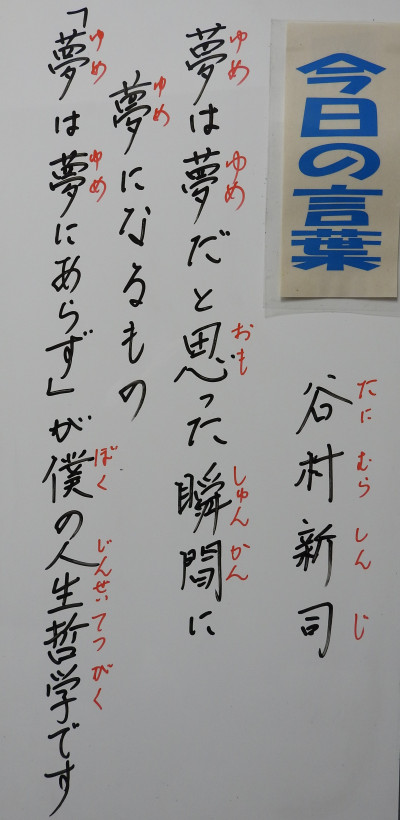 今日の言葉
谷村新司
たにむらしんじ
夢は夢だと思った瞬間に
ゆめゆめおもしゅんかん
夢になるもの
ゆめ
「夢は夢にあらず」が僕の人生哲学です
ゆめゆめぼくじんせいてつがく